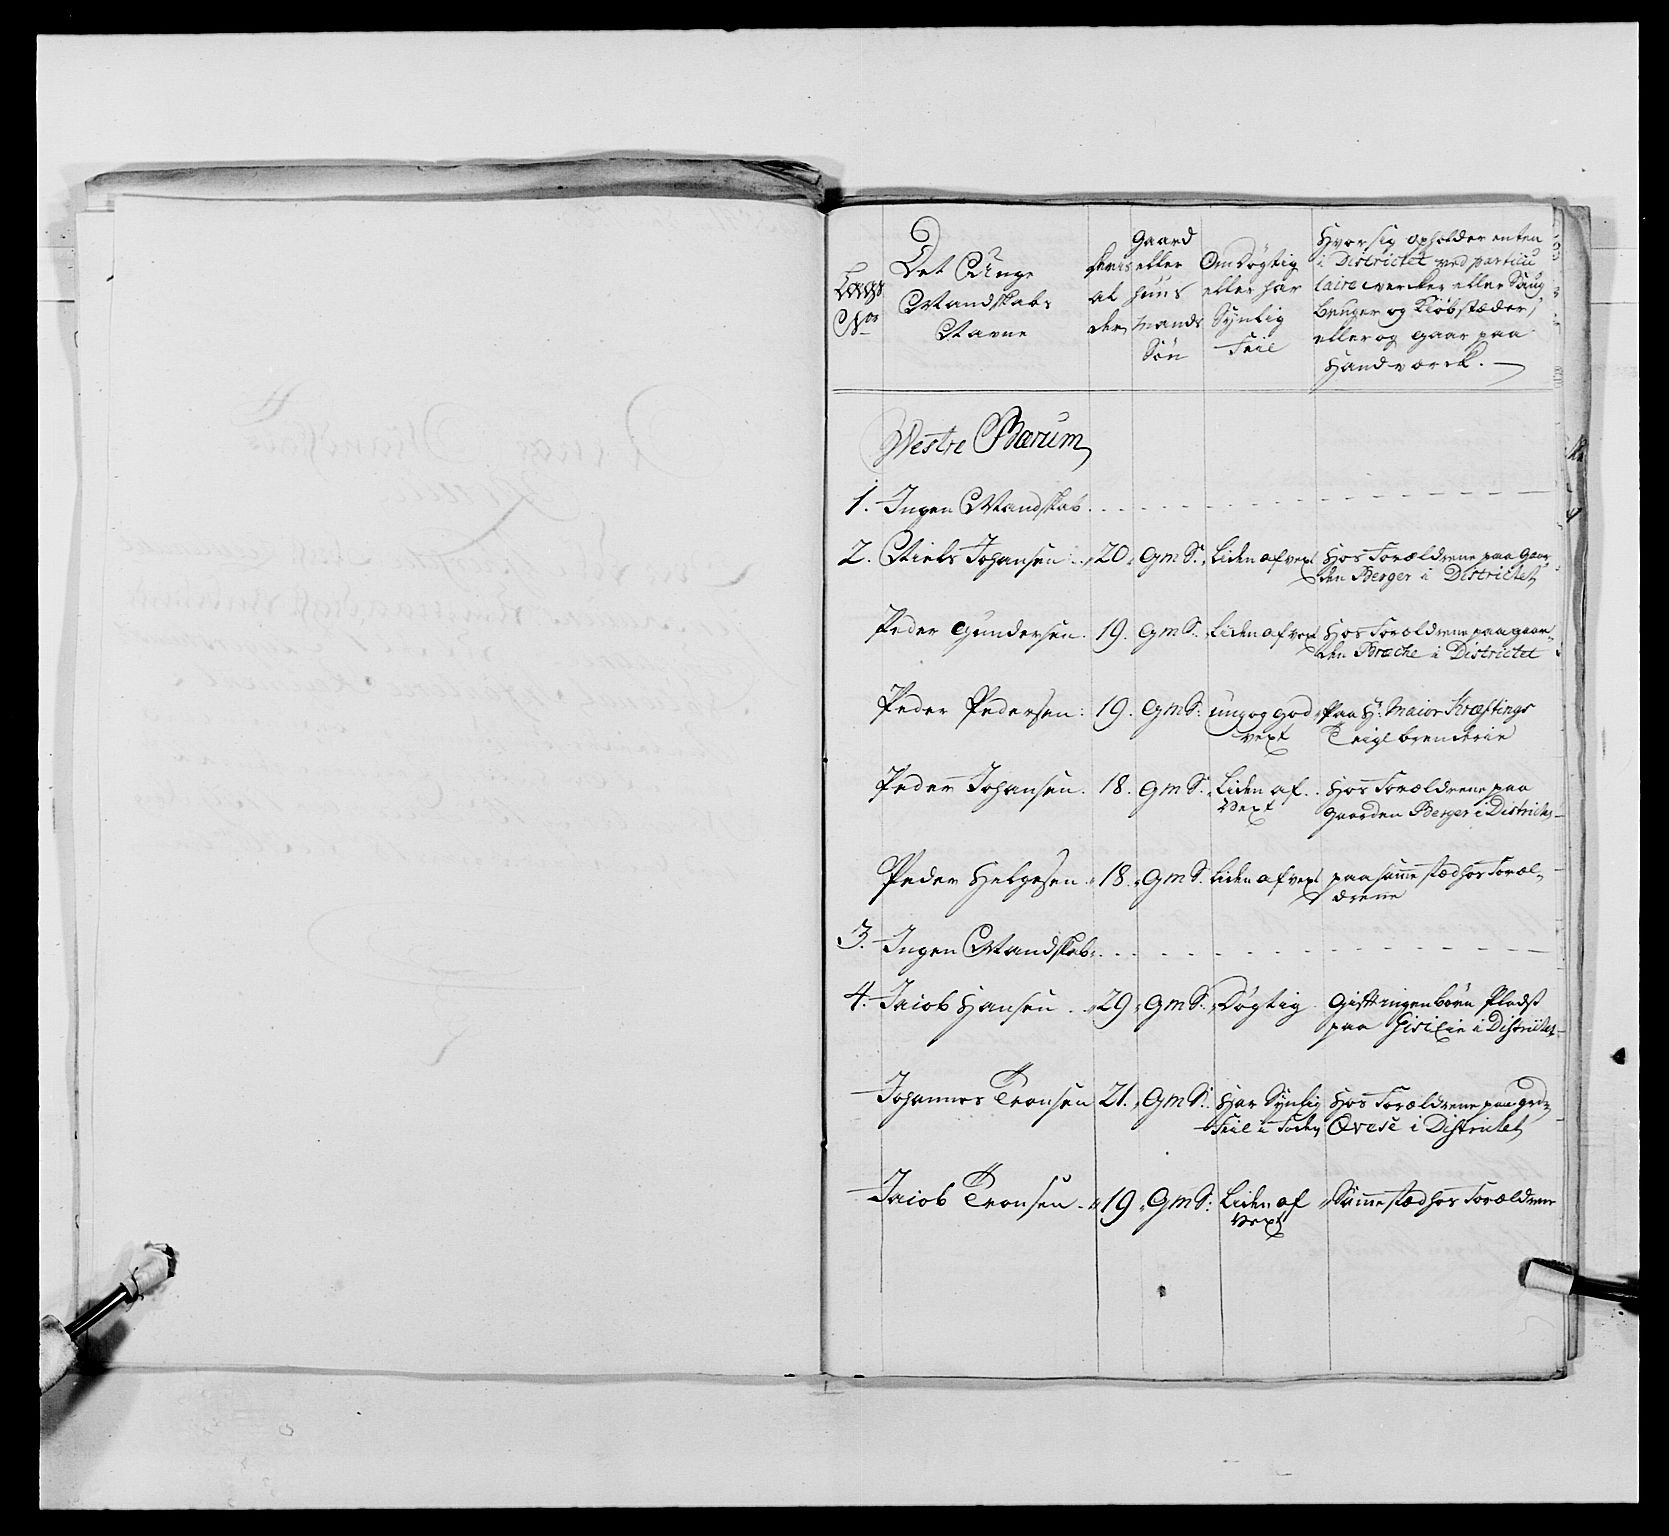 Lægs
Nos
Det Unge
Mandskabs
Navne
deris
al
der
Gaard
eller
huus
mands
Søn
Om Døgtig
eller har
Synlig
Feil
Hvor sig opholder enten
i Districtet ved particu
laire wercker eller Saug
Bruger og Kiøbstæder,
eller og gaar paa
Handværck.
Westre Bærum
1. Ingen Mandskab
2. Niels Johansen 20 GmS. Liden af vext Hos Forældrene paa Gaar
den Berger i Districtet
Peder Gundersen. 19. GmS. Liden af vext Hos Forældrene paa gaar
den Bræche i Districtet
Peder Pedersen: 19. GmS: ung og god Paa Hr. Maior Kræftings
vext Teigelbrenderie
Peder Johansen. 18. GmS. Liden af Hos Forældrene paa
Vext gaarden Berger i Districtet
Peder Helgesen 18. GmS. Liden af vext paa samme stæd hos Foræl-
drene
3. Ingen Mandskab
4. Jacob Hansen 29 GmS. Døgtig Gift ingen børn Pladst
paa i Districtet
Johannes Tronsen 21. GmS. Har Synlig Hos Forældrene paa grd
Feil i Foden i Districtet
Jacob Tronsen 19 GmS: Liden af Samme stæd hos Forældrene
Vext